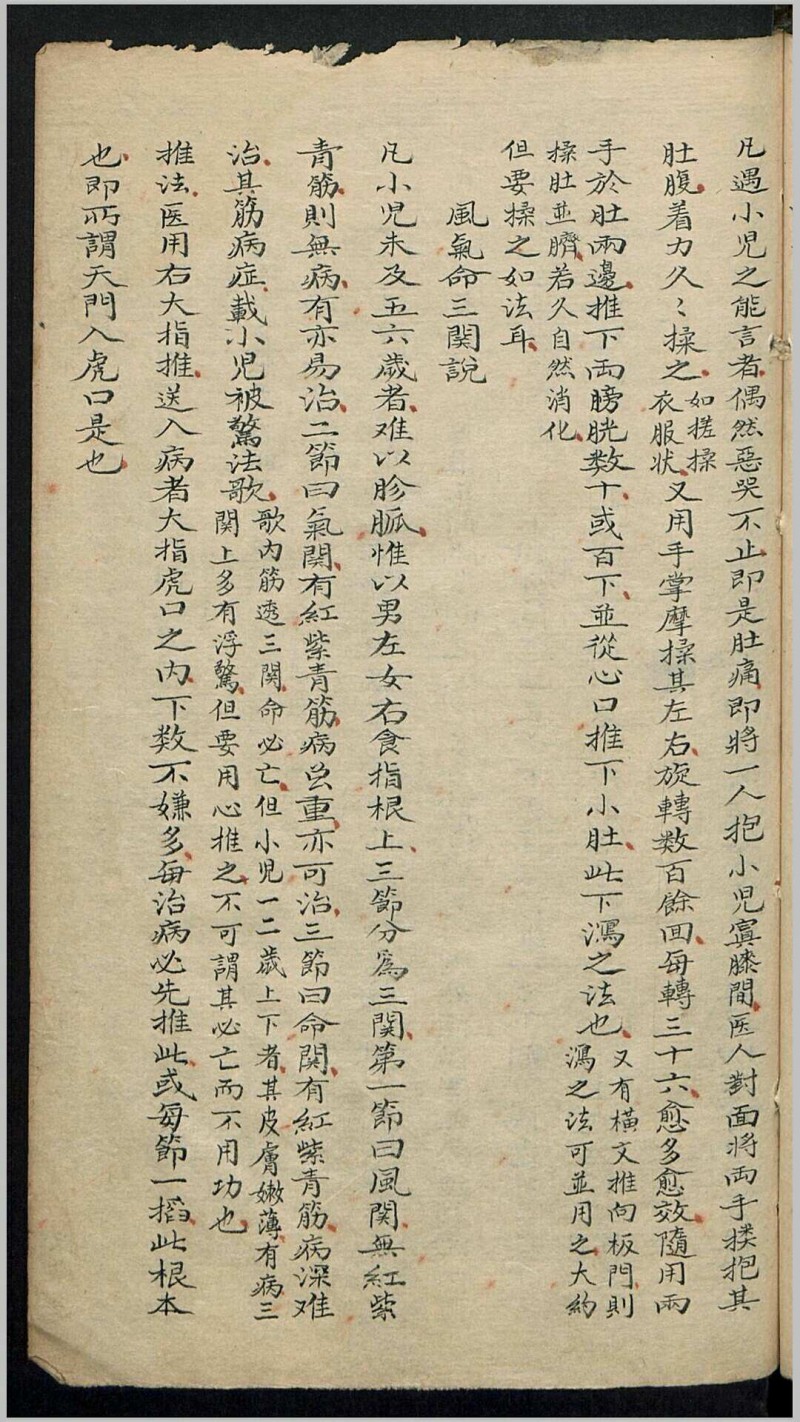 凡遇小児之能言者偶然惡哭不止即是肚痛即將一人抱小児寘膝間医人對面将両手摟抱其
肚腹着力久〻揉之如搓揉衣服状又用手掌摩揉其左右旋轉数百餘回每轉三十六愈多愈效隨用兩
手於肚兩邊推下両膀胱数十或百下並從心口推下小肚此下瀉之法也又有横文推向板門則瀉之法可並用之大約
揉肚並臍若久自然消化
但要揉之如法耳
風氣命三関說
凡小児未及五六歲者难以胗脈惟以男左女右食指根上三節分爲三関第一節曰風関無紅紫
青筋則無病有亦易治二節曰氣関有紅紫青筋病㒷重亦可治三節曰命関有紅紫青筋病深难
治其筋病症載小児被驚法歌歌内筋透三関命必亡但小児一二歲上下者其皮膚嫩薄有病三
関上多有浮驚但要用心推之不可謂其必亡而不用功也
推法医用右大指推送入病者大指虎口之内下数不嫌多每治病必先推此或每節一搯此根本
也即所謂天門入虎口是也